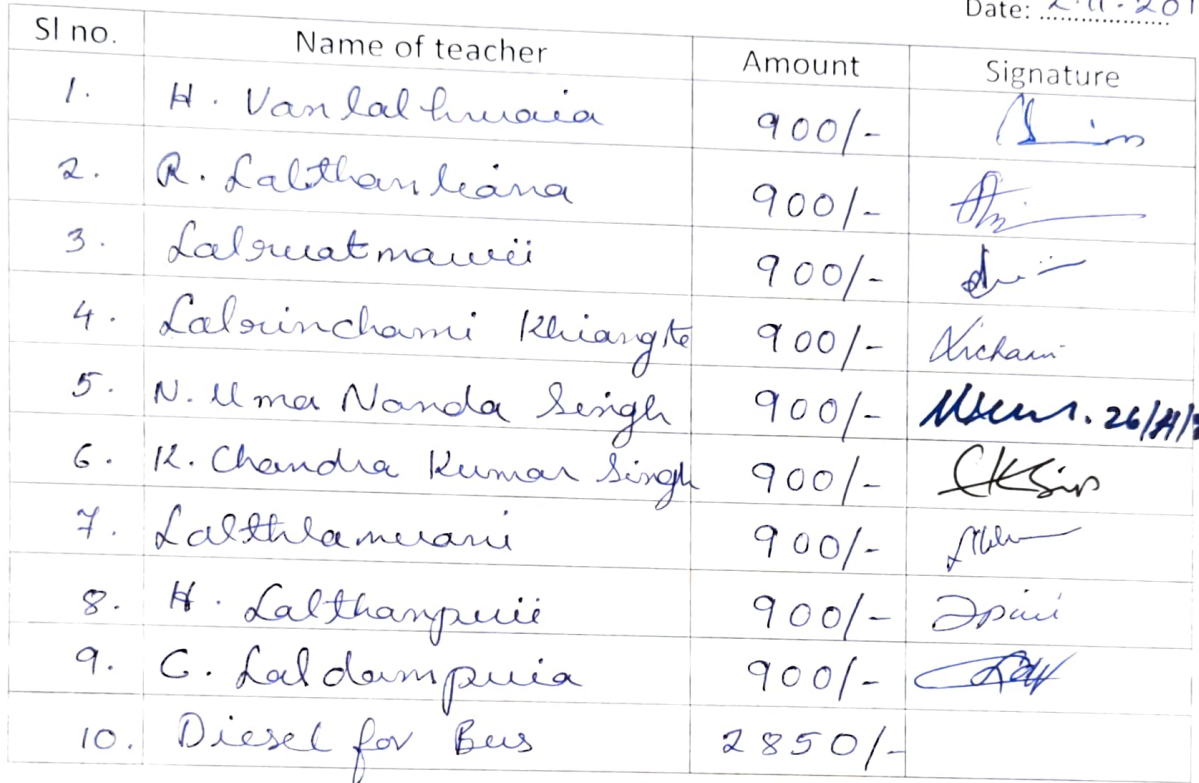 Date: 2.11.201
Sl no. Name of teacher Amount Signature
1. H. Vanlalhruaia 900/-
2. R. Lalthankiana 900/-
3. Lalruatmawii 900/-
4. Lalrinchami Khiangte 900/- Richami
5. N. Uma Nanda Singh 900/- 26/11/
6. K. Chandra Kumar Singh 900/- CKSin
7. Lalthlamuani 900/-
8. H. Lalthanpuii 900/-
9. C. Laldampuia 900/-
10. Diesel for Bus 2850/-